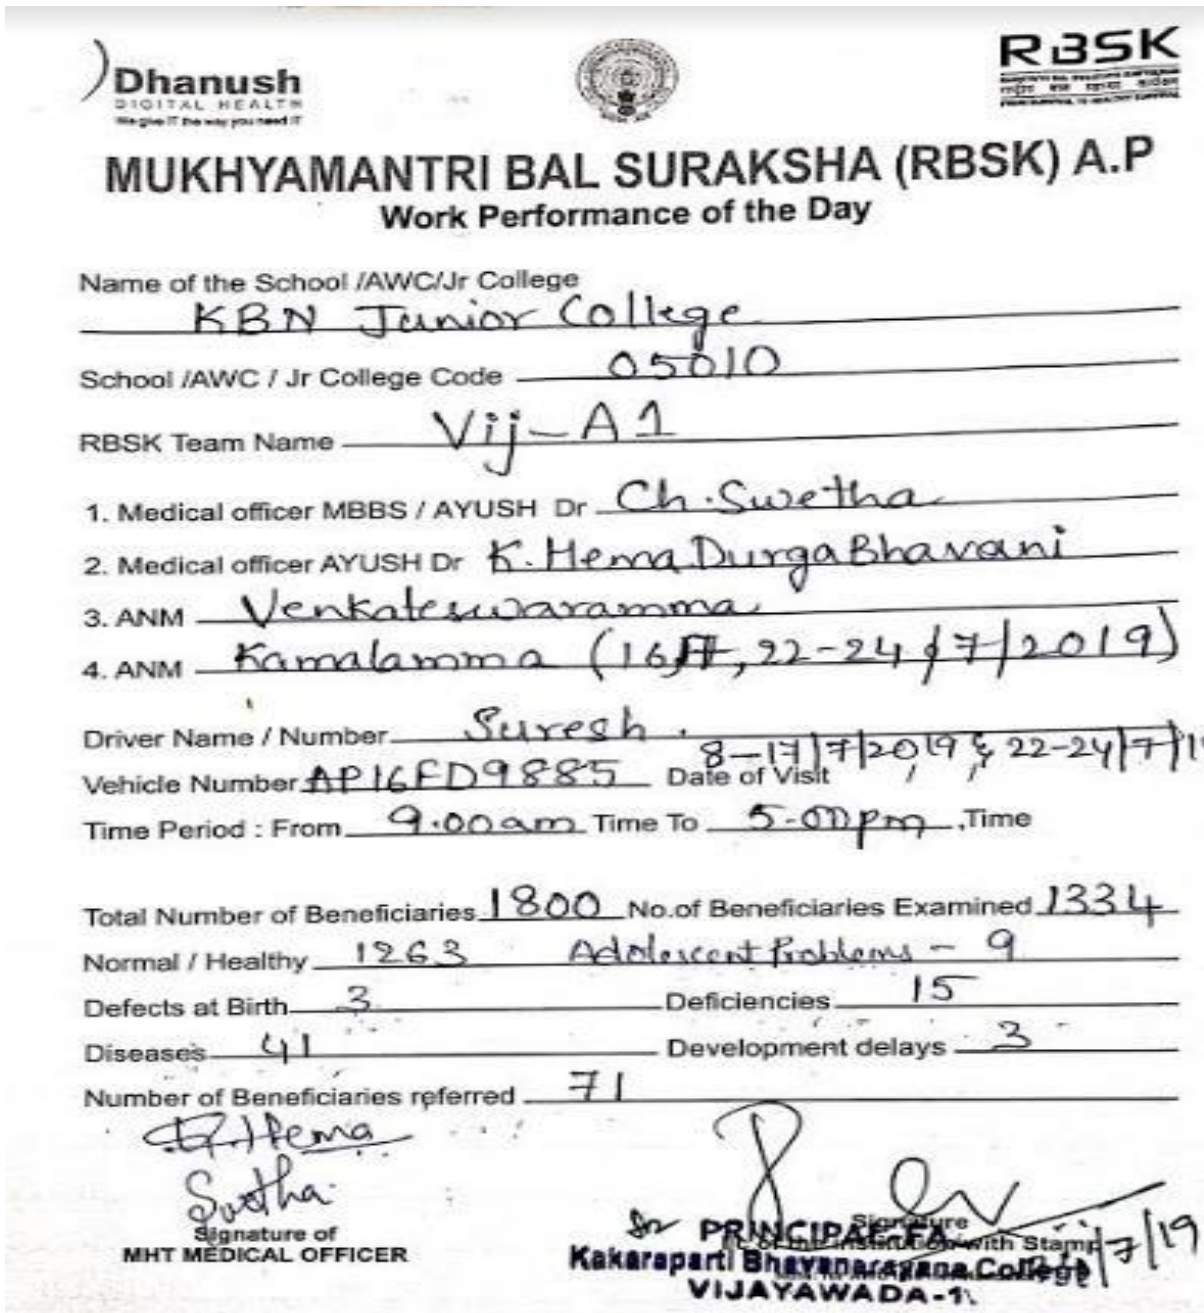 Dhanush
DIGITAL HEALTH
We give IT the way you need IT
RBSK
MUKHYAMANTRI BAL SURAKSHA (RBSK) A.P
Work Performance of the Day
Name of the School /AWC/Jr College
KBN Junior College
School /AWC / Jr College Code 05010
RBSK Team Name Vij-A1
1. Medical officer MBBS / AYUSH Dr Ch. Swetha
2. Medical officer AYUSH Dr K. Hema Durga Bhavani
3. ANM Venkateswaramma
4. ANM Kamalamma (16, 22-24/7/2019)
Driver Name / Number Suresh.
Vehicle Number AP16FD9885 Date of Visit 8-17/7/2019 & 22-24/7/19
Time Period : From 9.00am Time To 5.00pm .Time
Total Number of Beneficiaries 1800 No.of Beneficiaries Examined 1334
Normal / Healthy 1263 Adolescent Problems - 9
Defects at Birth 3 Deficiencies 15
Diseases 41 Development delays 3
Number of Beneficiaries referred 71
Hema
Swetha
Signature of
MHT MEDICAL OFFICER
Signature
of the Institution with Stamp
PRINCIPAL-FA
Kakaraparti Bhavanarayana College
VIJAYAWADA-1.
/7/19